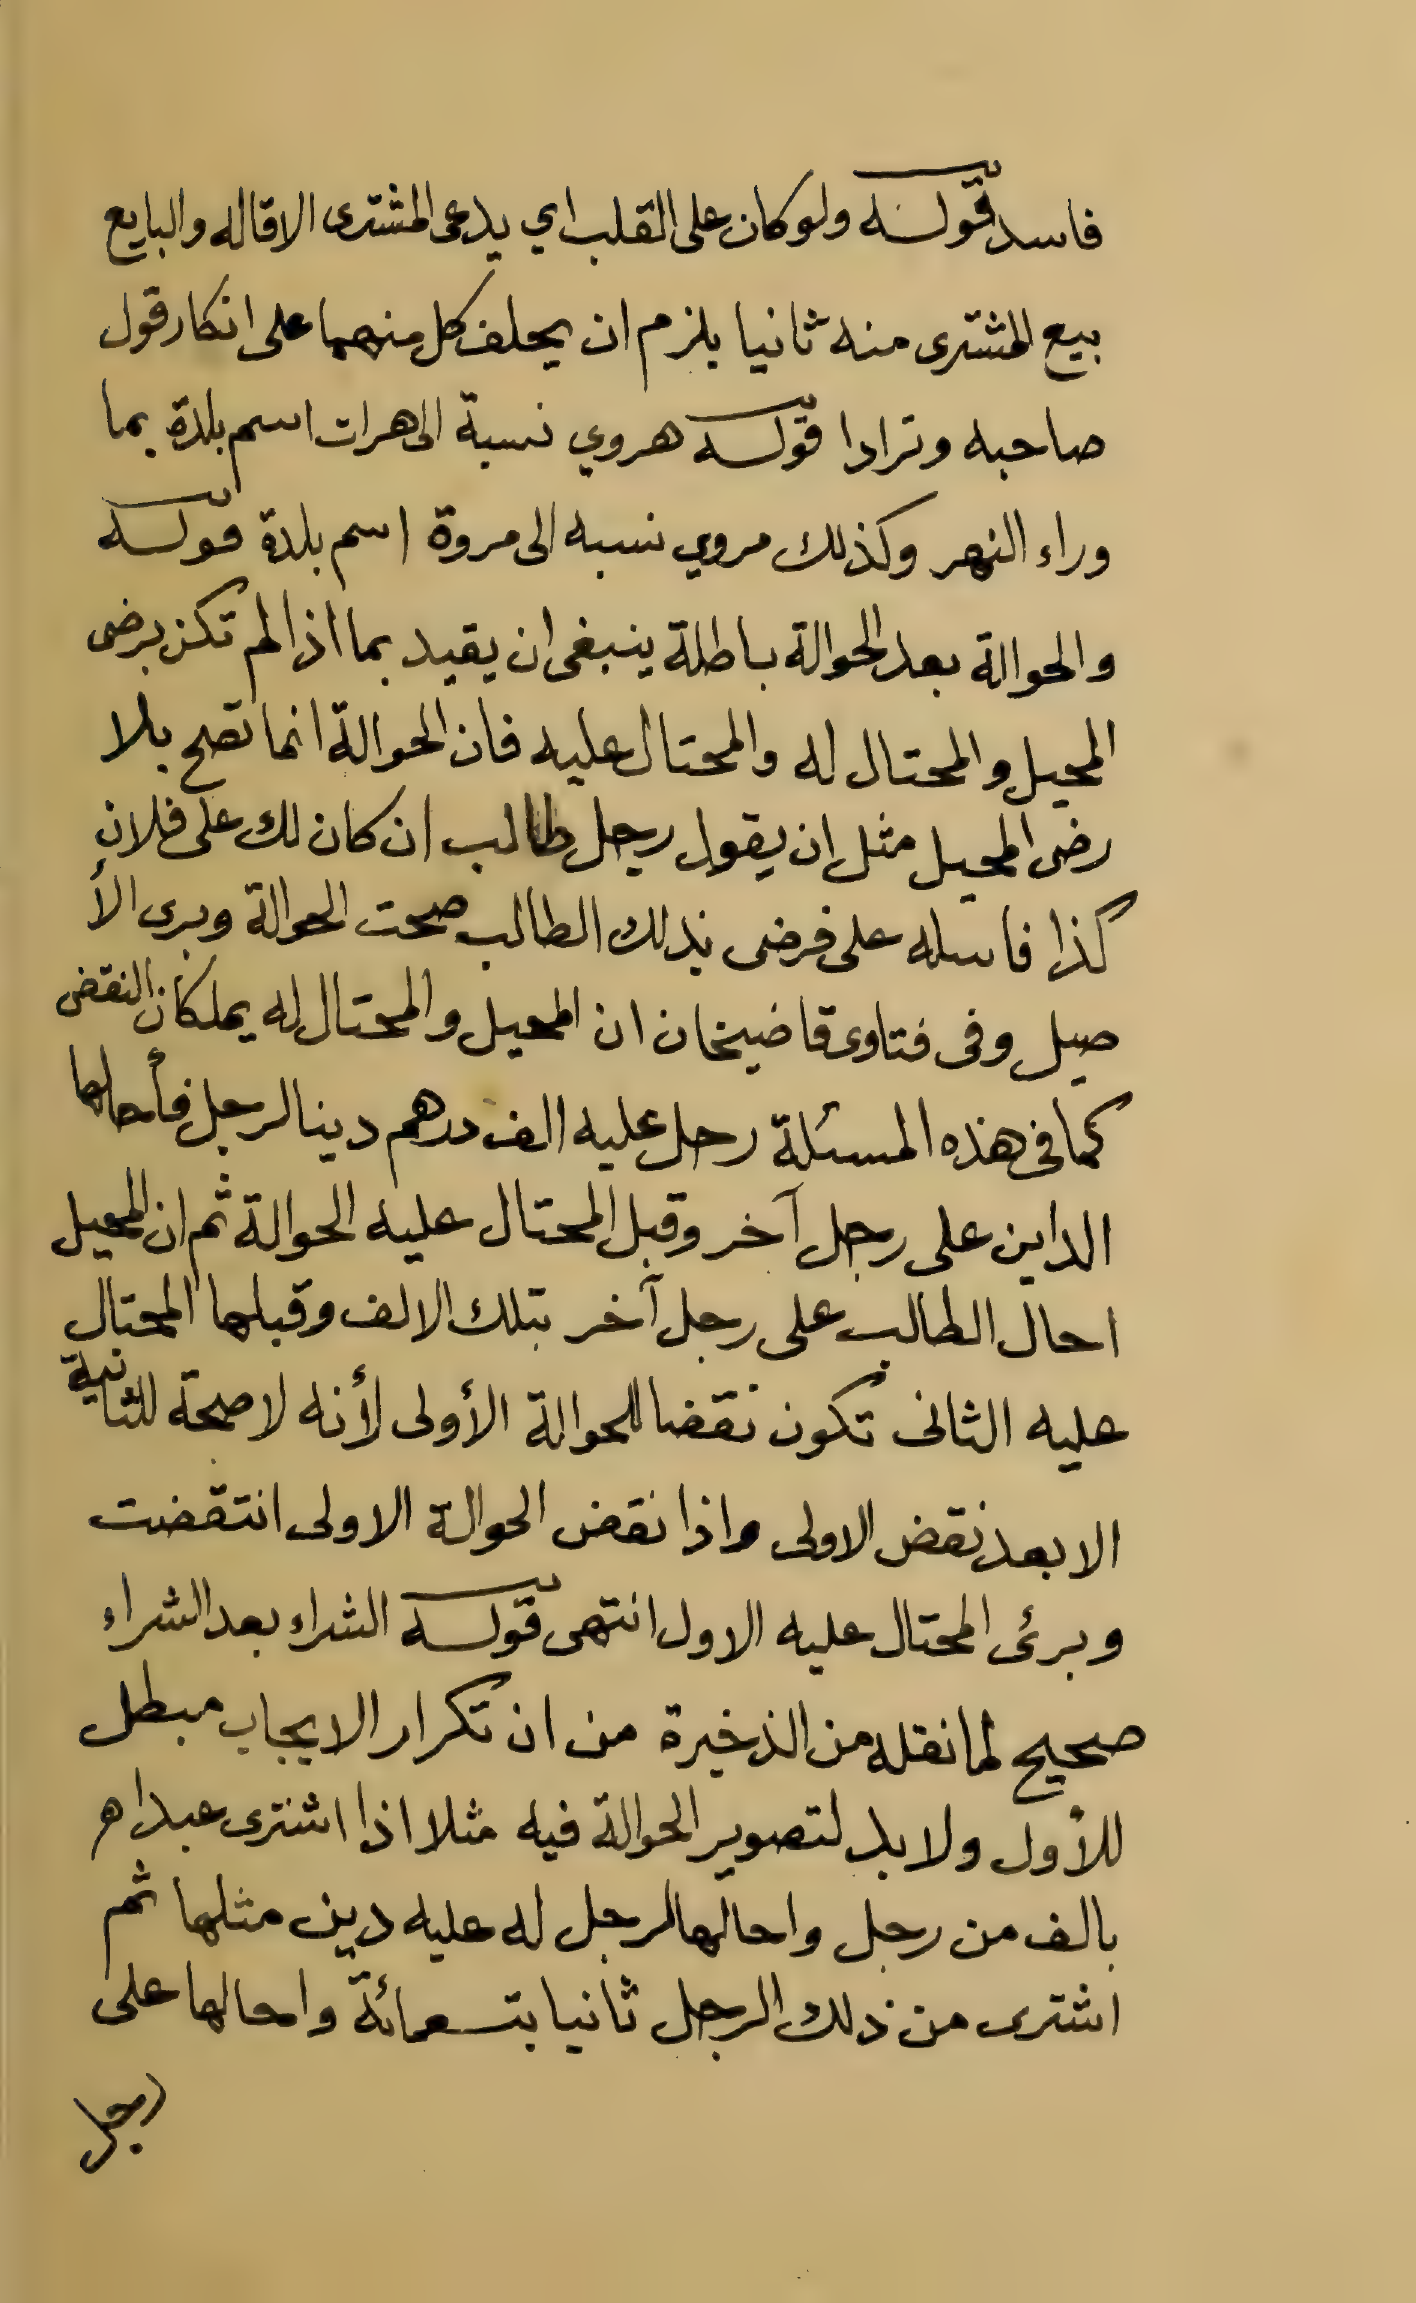 فاسد قوله ولو كان على القلب اي يدعى المشترى الاقاله والبايع
بيع المشترى منه ثانيا يلزم ان يحلف كل منهما على انكار قول
صاحبه وترادا قوله هروي نسبة الى هرات اسم بلدة بما
وراء النهر وكذلك مروي نسبه الى مروة اسم بلدة قوله
والحوالة بعد الحوالة باطلة ينبغى ان يقيد بما اذا لم تكن برضى
المحيل والمحتال له والمحتال عليه فان الحوالة انما تصح بلا
رضى المحيل مثل ان يقول رجل طالب ان كان لك على فلان
كذا فاسله على فرضى بذلك الطالب صحت الحوالة وبرى الأ
صيل وفى فتاوى قاضيخان ان المحيل والمحتال له يملكان النقض
كما فى هذه المسئلة رجل عليه الف درهم دينا لرجل فأحالها
الداين على رجل آخر وقبل المحتال عليه الحوالة ثم ان المحيل
احال الطالب على رجل آخر بتلك الالف وقبلها المحتال
عليه الثانى تكون نقضا للحوالة الأولى لأنه لا صحة للثانية
الا بعد نقض الاولى واذا نقض الحوالة الاولى انتقضت
وبرئ المحتال عليه الاول انتهى قوله الشراء بعد الشراء
صحيح لما نقله من الذخيرة من ان تكرار الايجاب مبطل
للأول ولا بد لتصوير الحوالة فيه مثلا اذا اشترى عبدا ه
بالف من رجل واحالها لرجل له عليه دين مثلها ثم
اشترى من ذلك الرجل ثانيا بتسعمائة واحالها على
رجل